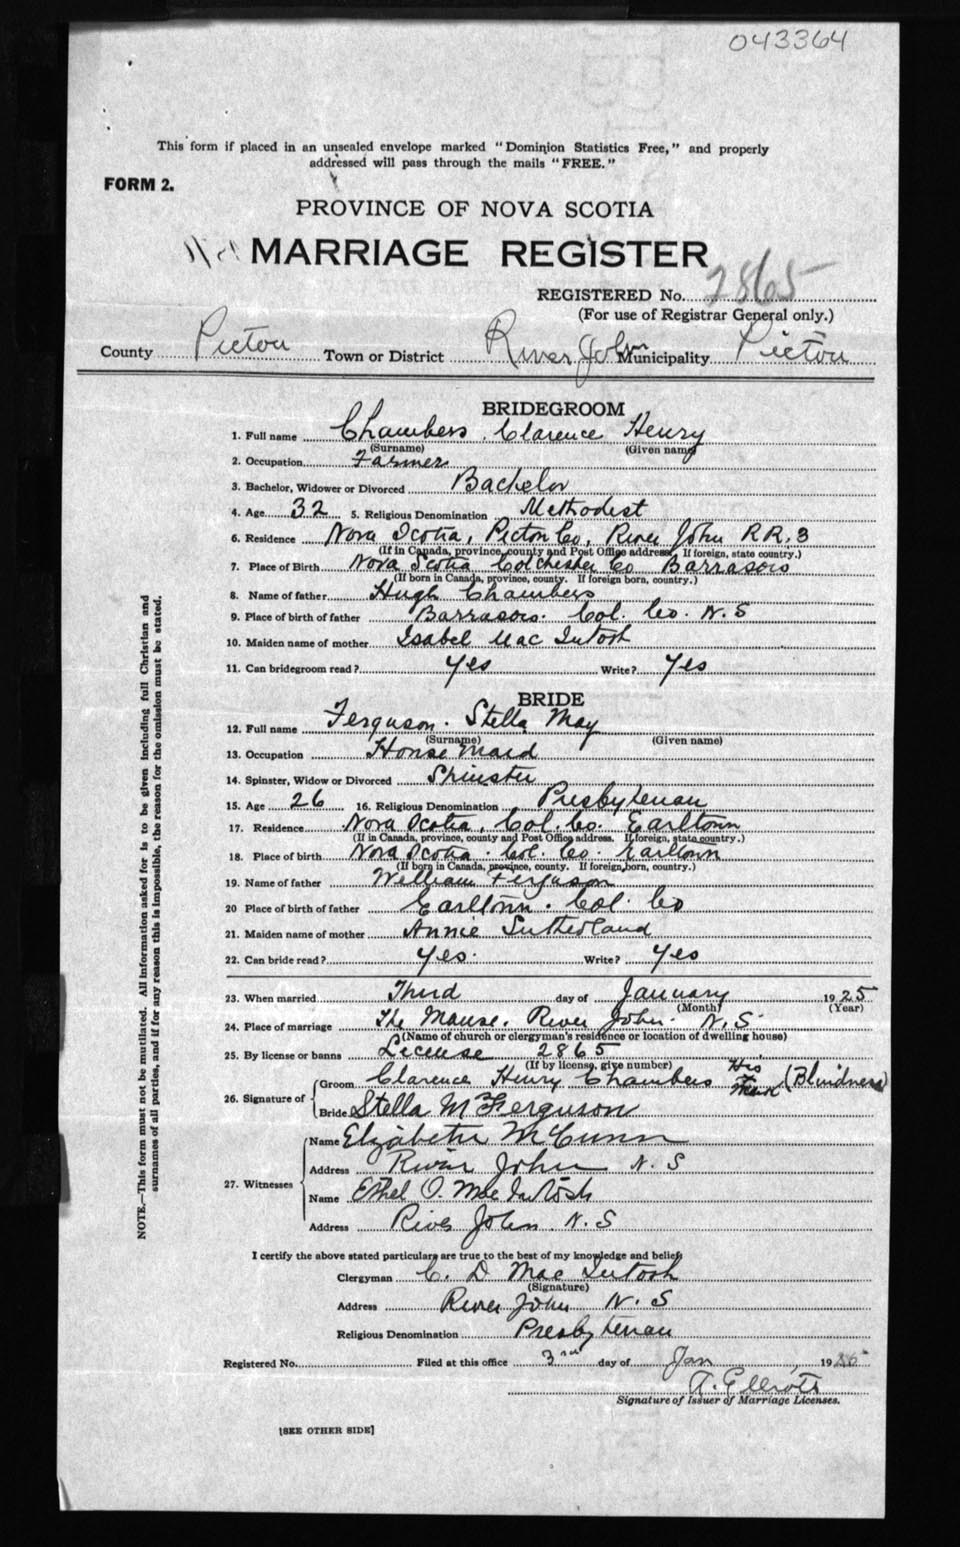 043364
This form if placed in an unsealed envelope marked "Dominion Statistics Free," and properly
addressed will pass through the mails "FREE."
FORM 2.
PROVINCE OF NOVA SCOTIA
MARRIAGE REGISTER
REGISTERED No. 2865
(For use of Registrar General only.)
County Pictou Town or District River John Municipality Pictou
BRIDEGROOM
1. Full name Chambers, Clarence Henry
(Surname) (Given name)
2. Occupation Farmer
3. Bachelor, Widower or Divorced Bachelor
4. Age 32 5. Religious Denomination Methodist
6. Residence Nova Scotia, Picton Co, River John R R. 3
(If in Canada, province, county and Post Office address. If foreign, state country.)
7. Place of Birth Nova Scotia Colchester Co Barrasois
(If born in Canada, province, county. If foreign born, country.)
8. Name of father Hugh Chambers
9. Place of birth of father Barrasois. Col. Co. N. S
10. Maiden name of mother Isabel Mac Intosh
11. Can bridegroom read? Yes Write? Yes
BRIDE
12. Full name Ferguson. Stella May
(Surname) (Given name)
13. Occupation House Maid
14. Spinster, Widow or Divorced Spinster
15. Age 26 16. Religious Denomination Presbyterian
17. Residence Nova Scotia, Col. Co. Earltown
(If in Canada, province, county and Post Office address. If foreign, state country.)
18. Place of birth Nova Scotia. Col. Co. Earltown
(If born in Canada, province, county. If foreign born, country.)
19. Name of father William Ferguson
20 Place of birth of father Earltown. Col. Co
21. Maiden name of mother Annie Sutherland
22. Can bride read? Yes. Write? Yes
23. When married Third day of January 1925
(Month) (Year)
24. Place of marriage The Manse. River John. N. S
(Name of church or clergyman's residence or location of dwelling house)
25. By license or banns License 2865
(If by license, give number)
26. Signature of Groom Clarence Henry Chambers His X Mark (Blindness)
Bride Stella M Ferguson
27. Witnesses Name Elizabeth McCunn
Address River John N. S
Name Ethel O. MacIntosh
Address River John N. S
I certify the above stated particulars are true to the best of my knowledge and belief.
Clergyman C. D. Mac Intosh
(Signature)
Address River John N. S
Religious Denomination Presbyterian
Registered No. Filed at this office 3rd day of Jan 1925
Signature of Issuer of Marriage Licenses.
[SEE OTHER SIDE]
NOTE.—This form must not be mutilated. All information asked for is to be given including full Christian and
surnames of all parties, and if for any reason this is impossible, the reason for the omission must be stated.